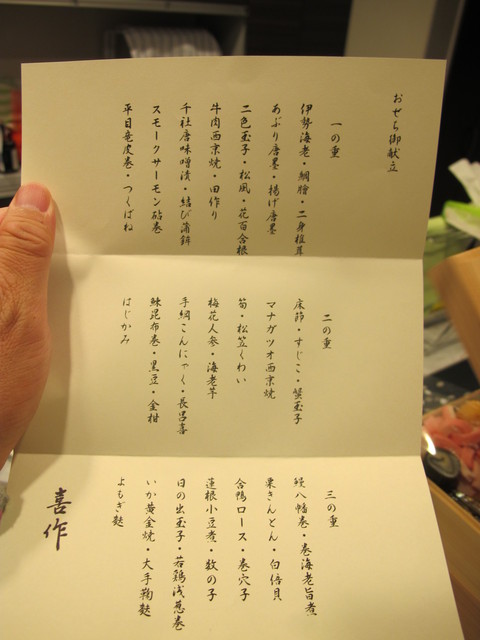 おせち御献立
一の重
伊勢海老・鯛膾・二身椎茸
あぶり唐墨・揚げ唐墨
二色玉子・松風・花百合根
牛肉西京焼・田作り
千社唐味噌漬・結び蒲鉾
スモークサーモン砧巻
平目竜皮巻・つくばね
二の重
床節・すじこ・蟹玉子
マナガツオ西京焼
筍・松笠くわい
梅花人参・海老芋
手綱こんにゃく・長呂喜
鰊昆布巻・黒豆・金柑
はじかみ
三の重
鰻八幡巻・巻海老旨煮
栗きんとん・白倍貝
合鴨ロース・巻穴子
蓮根小豆煮・数の子
日の出玉子・若鶏浅葱巻
いか黄金焼・大手鞠麩
よもぎ麩
喜作